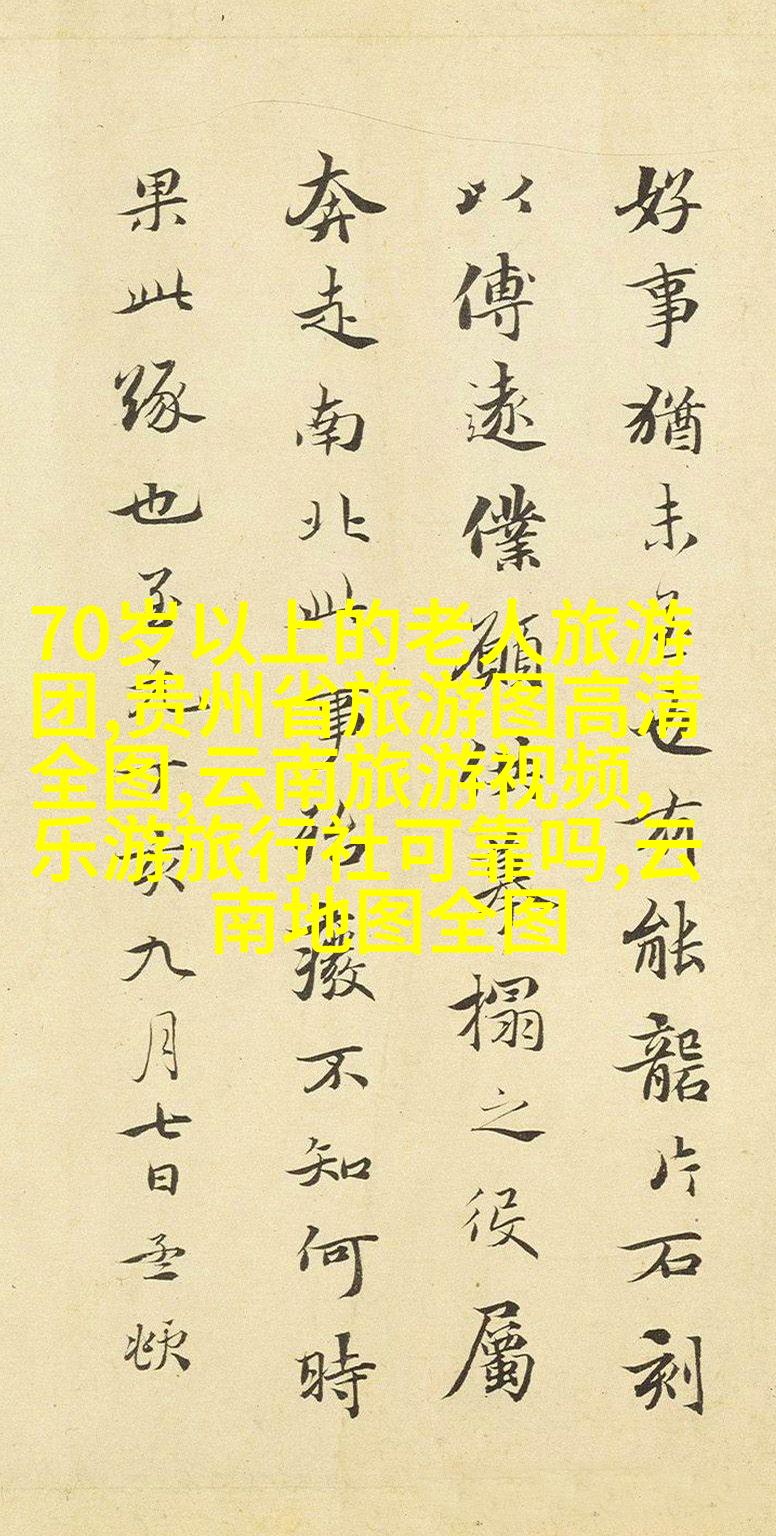 好事猶未也有能礱片石刻
以傳遠僕願供摹搨之役屬
奔走南北此事殆廢不知何時
果此緣也至元丁亥九月七日孟頫
70岁以上的老人旅游
团,贵州省旅游图高清
全图,云南旅游视频,
乐游旅行社可靠吗,云
南地图全图